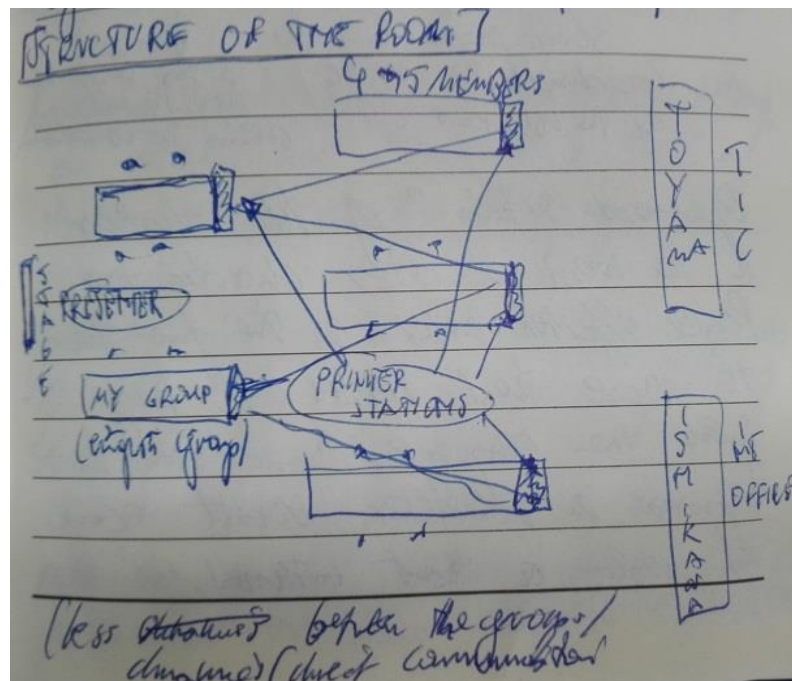 STRUCTURE OF THE ROOM
4-5 MEMBERS
TOYAMA
TIC
STAGE
PROJETMER
MY GROUP
(english group)
PRINTER
STATIONS
ISHIKAWA
OFFICE
(less between the groups/
direct